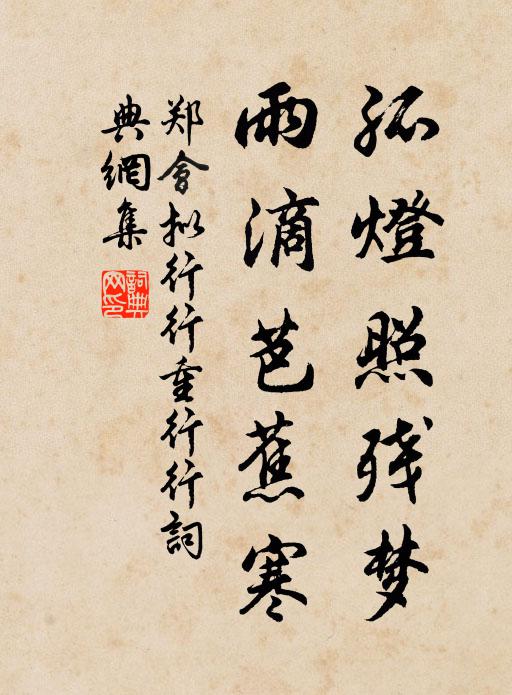 孤燈照残梦
雨滴芭蕉寒
郑會拟行行重行行詞
典網集
詞典
网印